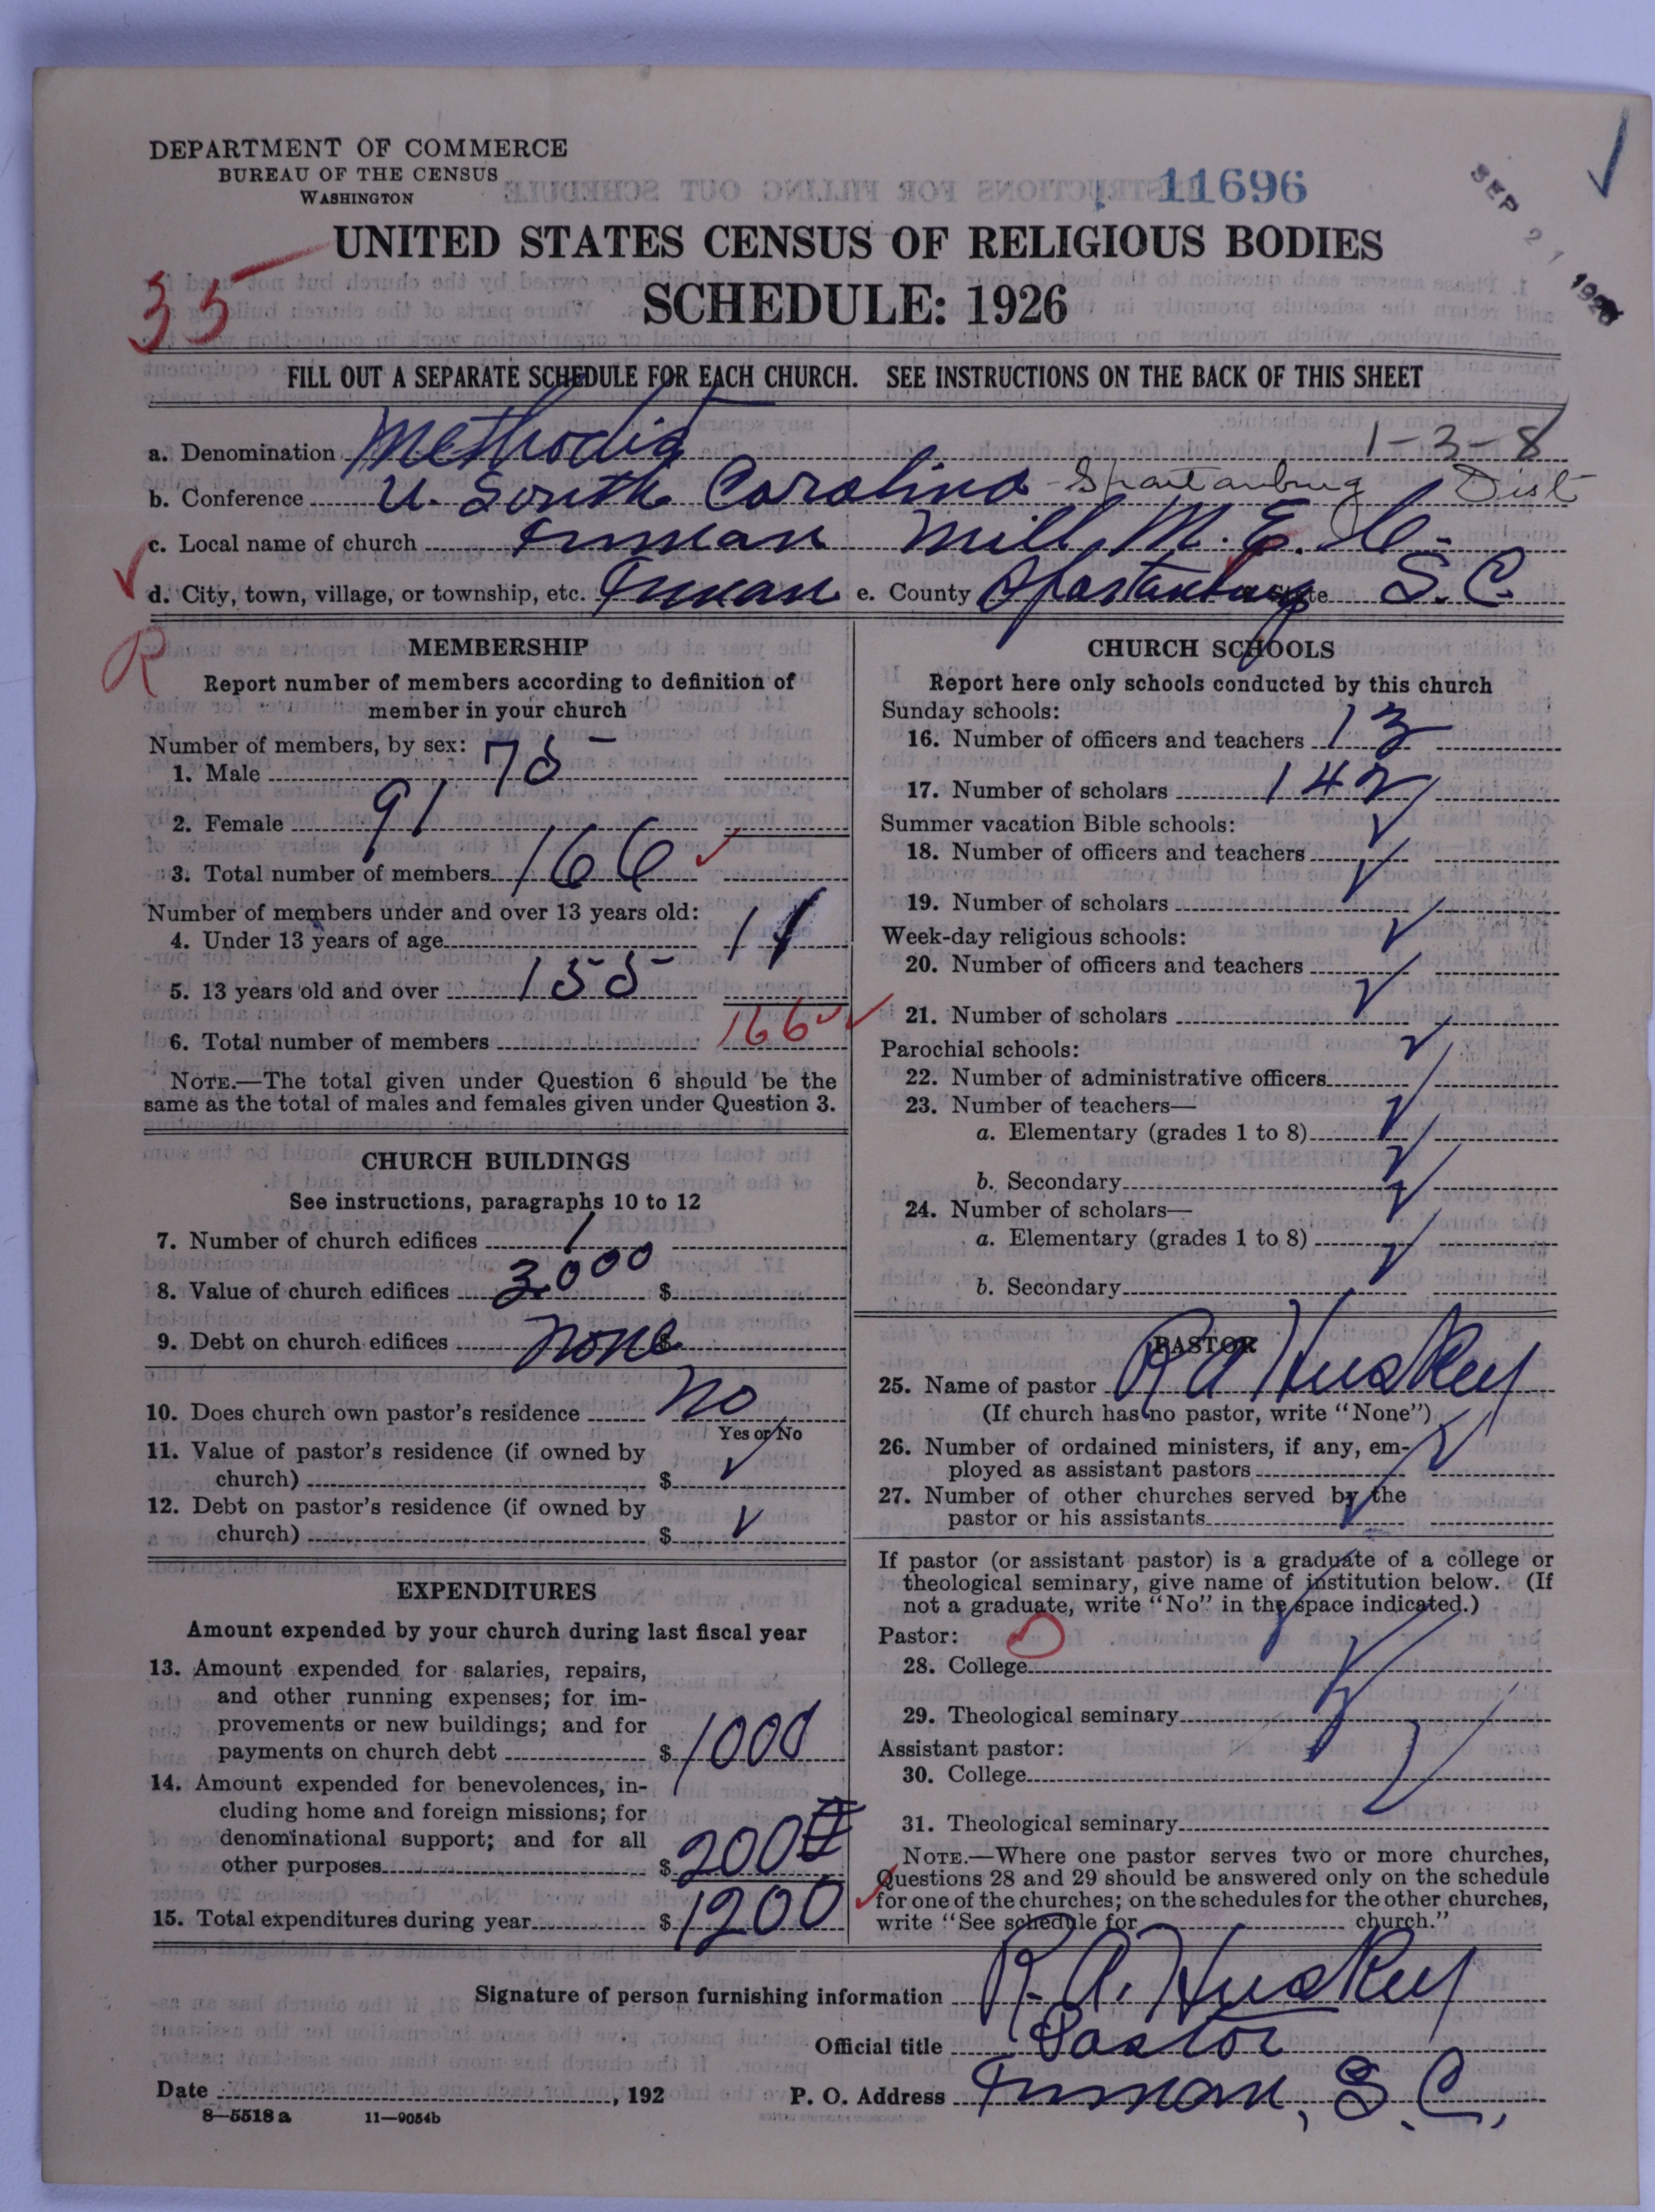 DEPARTMENT OF COMMERCE
BUREAU OF THE CENSUS
WASHINGTON
11696
SEP 21 1926
UNITED STATES CENSUS OF RELIGIOUS BODIES
35
SCHEDULE: 1926
FILL OUT A SEPARATE SCHEDULE FOR EACH CHURCH. SEE INSTRUCTIONS ON THE BACK OF THIS SHEET
a. Denomination Methodist 1-3-8
b. Conference U. South Carolina - Spartanburg Dist
c. Local name of church Inman Mill M. E. C.
d. City, town, village, or township, etc. Inman e. County Spartanburg State S.C.
R
MEMBERSHIP
Report number of members according to definition of
member in your church
Number of members, by sex:
1. Male 75
2. Female 91
3. Total number of members 166
Number of members under and over 13 years old:
4. Under 13 years of age 11
5. 13 years old and over 155
6. Total number of members 166
NOTE.—The total given under Question 6 should be the
same as the total of males and females given under Question 3.
CHURCH BUILDINGS
See instructions, paragraphs 10 to 12
7. Number of church edifices 1
8. Value of church edifices 3000 $
9. Debt on church edifices none $
10. Does church own pastor's residence no
Yes or No
11. Value of pastor's residence (if owned by
church) $
12. Debt on pastor's residence (if owned by
church) $
EXPENDITURES
Amount expended by your church during last fiscal year
13. Amount expended for salaries, repairs,
and other running expenses; for im-
provements or new buildings; and for
payments on church debt $ 1000
14. Amount expended for benevolences, in-
cluding home and foreign missions; for
denominational support; and for all
other purposes $ 200
15. Total expenditures during year $ 1200
CHURCH SCHOOLS
Report here only schools conducted by this church
Sunday schools:
16. Number of officers and teachers 13
17. Number of scholars 142
Summer vacation Bible schools:
18. Number of officers and teachers
19. Number of scholars
Week-day religious schools:
20. Number of officers and teachers
21. Number of scholars
Parochial schools:
22. Number of administrative officers
23. Number of teachers—
a. Elementary (grades 1 to 8)
b. Secondary
24. Number of scholars—
a. Elementary (grades 1 to 8)
b. Secondary
PASTOR
25. Name of pastor R A Huskey
(If church has no pastor, write "None")
26. Number of ordained ministers, if any, em-
ployed as assistant pastors
27. Number of other churches served by the
pastor or his assistants
If pastor (or assistant pastor) is a graduate of a college or
theological seminary, give name of institution below. (If
not a graduate, write "No" in the space indicated.)
Pastor:
28. College
29. Theological seminary
Assistant pastor:
30. College
31. Theological seminary
NOTE.—Where one pastor serves two or more churches,
Questions 28 and 29 should be answered only on the schedule
for one of the churches; on the schedules for the other churches,
write "See schedule for church."
Signature of person furnishing information R. A. Huskey
Official title Pastor
Date , 192 P. O. Address Inman, S. C.,
8—5518 a 11—9054b